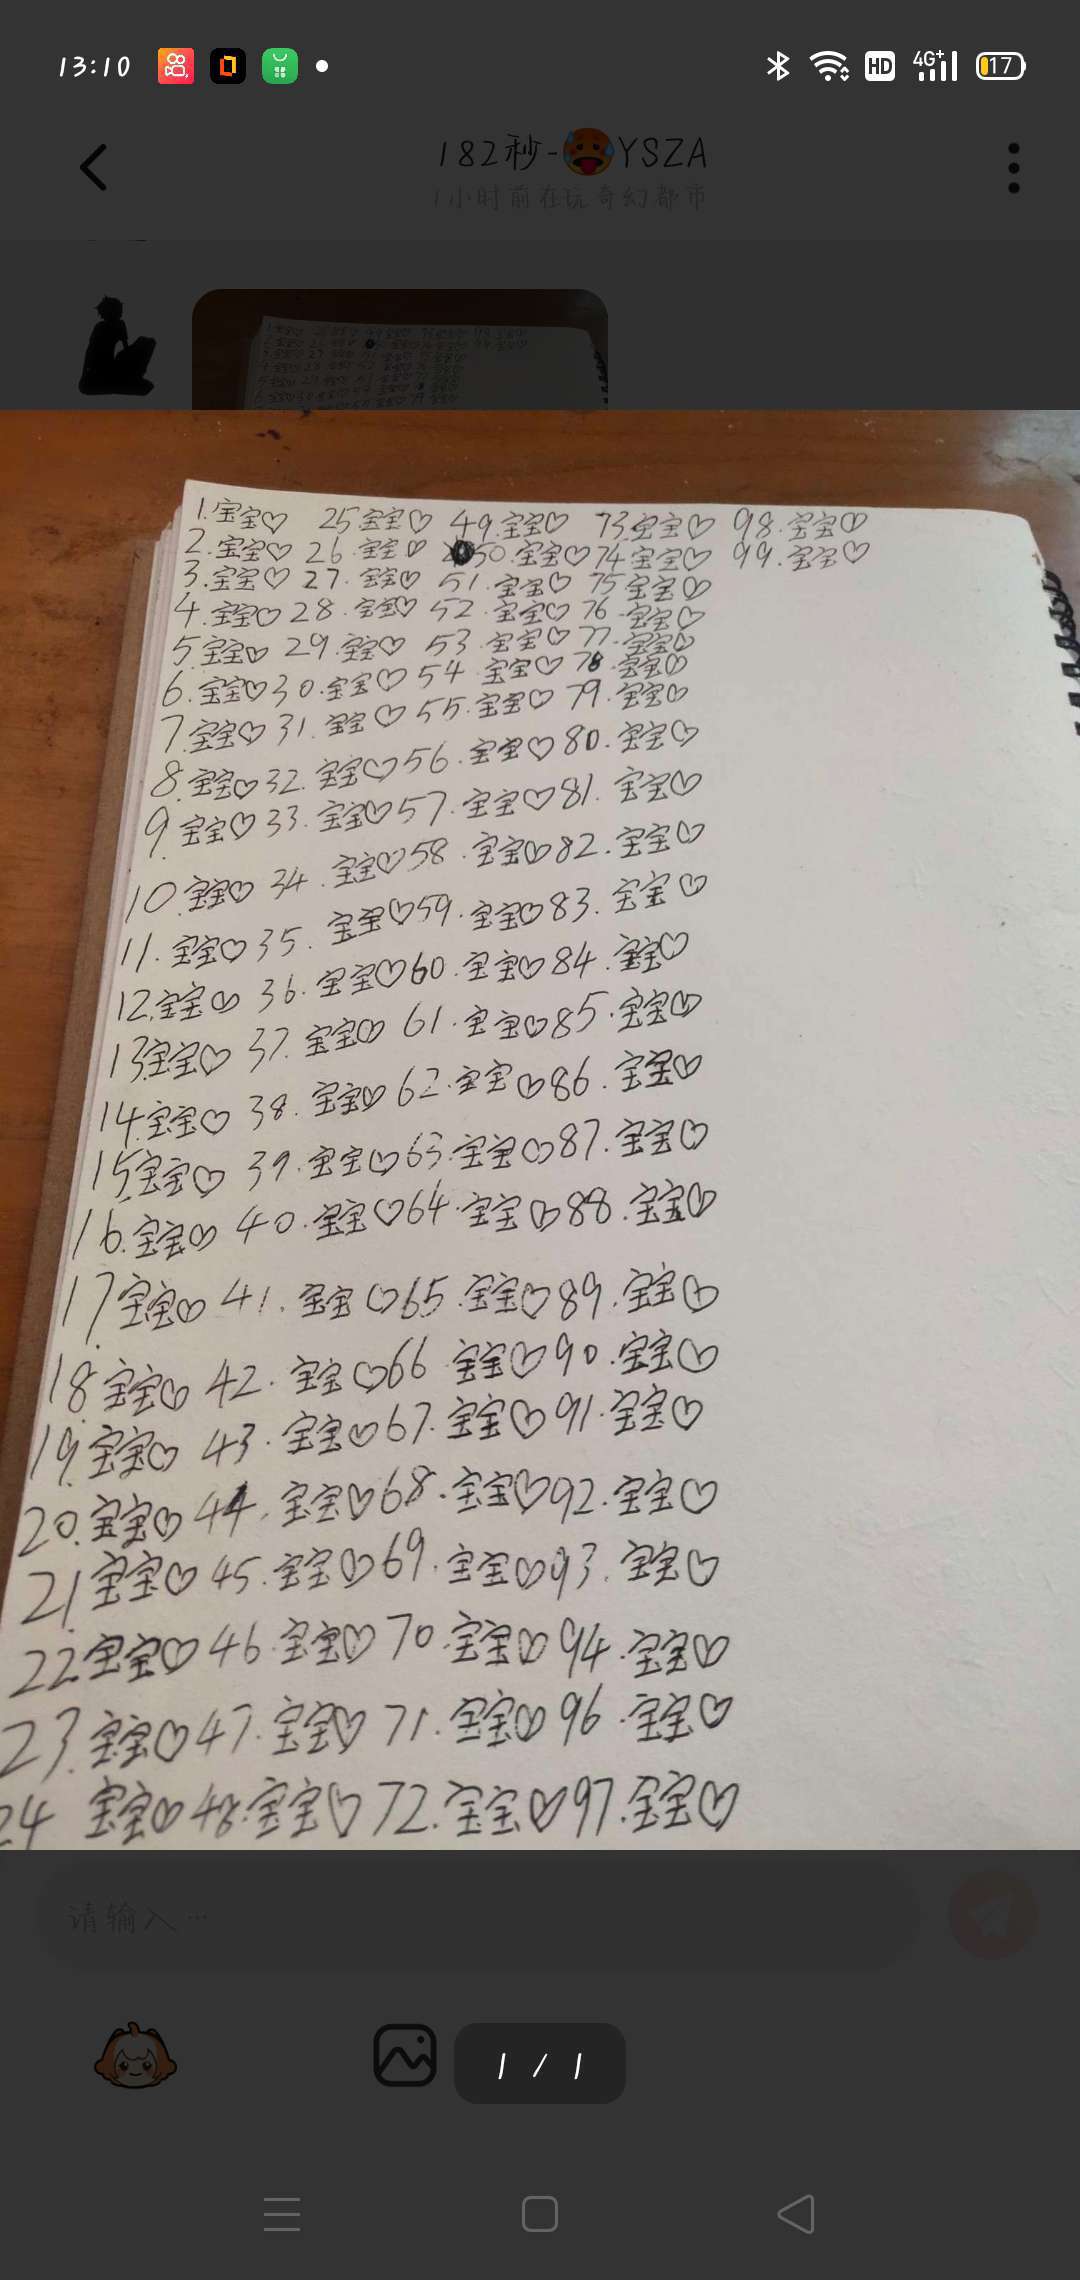 13:10
HD 4G+ 17
182秒-🥵YSZA
1小时前在玩奇幻都市
1.宝宝♡ 25宝宝♡ 49.宝宝♡ 73.宝宝♡ 98.宝宝♡
2.宝宝♡ 26.宝宝♡ 50.宝宝♡ 74宝宝♡ 99.宝宝♡
3.宝宝♡ 27.宝宝♡ 51.宝宝♡ 75宝宝♡
4.宝宝♡ 28.宝宝♡ 52.宝宝♡ 76.宝宝♡
5宝宝♡ 29.宝宝♡ 53.宝宝♡ 77.宝宝♡
6.宝宝♡ 30.宝宝♡ 54.宝宝♡ 78.宝宝♡
7.宝宝♡ 31.宝宝♡ 55.宝宝♡ 79.宝宝♡
8.宝宝♡ 32.宝宝♡ 56.宝宝♡ 80.宝宝♡
9.宝宝♡ 33.宝宝♡ 57.宝宝♡ 81.宝宝♡
10.宝宝♡ 34.宝宝♡ 58.宝宝♡ 82.宝宝♡
11.宝宝♡ 35.宝宝♡ 59.宝宝♡ 83.宝宝♡
12.宝宝♡ 36.宝宝♡ 60.宝宝♡ 84.宝宝♡
13.宝宝♡ 37.宝宝♡ 61.宝宝♡ 85.宝宝♡
14.宝宝♡ 38.宝宝♡ 62.宝宝♡ 86.宝宝♡
15宝宝♡ 39.宝宝♡ 63.宝宝♡ 87.宝宝♡
16.宝宝♡ 40.宝宝♡ 64.宝宝♡ 88.宝宝♡
17.宝宝♡ 41.宝宝♡ 65.宝宝♡ 89.宝宝♡
18.宝宝♡ 42.宝宝♡ 66 宝宝♡ 90.宝宝♡
19.宝宝♡ 43.宝宝♡ 67.宝宝♡ 91.宝宝♡
20.宝宝♡ 44.宝宝♡ 68.宝宝♡ 92.宝宝♡
21.宝宝♡ 45.宝宝♡ 69.宝宝♡ 93.宝宝♡
22.宝宝♡ 46.宝宝♡ 70.宝宝♡ 94.宝宝♡
23.宝宝♡ 47.宝宝♡ 71.宝宝♡ 96.宝宝♡
24 宝宝♡ 48.宝宝♡ 72.宝宝♡ 97.宝宝♡
请输入…
1 / 1